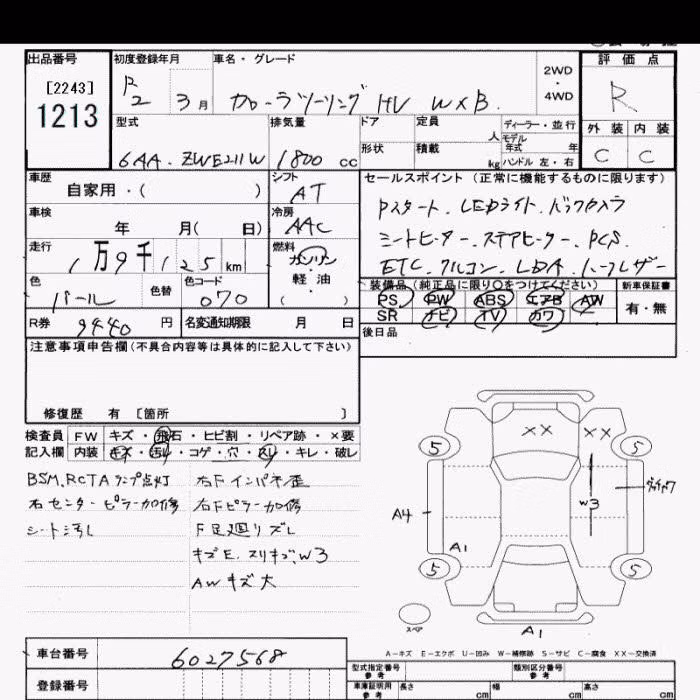 出品番号
[2243]
1213
初度登録年月
R2 3月
車名・グレード
カローラツーリング HV W×B
2WD
・
4WD
評価点
R
外装 内装
C C
型式
6AA-ZWE211W
排気量
1800 cc
ドア
形状
定員
人
積載
kg
ディーラー・並行
モデル年式 年
ハンドル 左・右
車歴
自家用・( )
シフト
AT
車検
年 月( 日)
冷房
AAC
走行
1万9千125km
燃料
ガソリン
軽油
( )
色
パール
色替
色コード
070
R券
9440円
名変通知期限 月 日
セールスポイント(正常に機能するものに限ります)
Pスタート、LEDライト、バックカメラ
シートヒーター、ステアヒーター、PCS
ETC、クルコン、LDA、ハーフレザー
装備品(純正品に限り○をつけてください)
PS PW ABS エアB AW
SR ナビ TV カワ
新車保証書
有・無
後日品
注意事項申告欄(不具合内容等は具体的に記入して下さい)
修復歴 有 [箇所 ]
検査員記入欄
FW キズ・飛石・ヒビ割・リペア跡・×要
内装 キズ・汚レ・コゲ・穴・スレ・キレ・破レ
BSM,RCTAランプ点灯
右センターピラー加修
シート汚レ
右Fインパネ歪
右Fピラー加修
F足廻リズレ
キズE、スリキズ、W3
AWキズ大
×× ××
5 5
W3
A4
A1
5 5
スペア
A1
A-キズ E-エクボ U-凹み W-補修跡 S-サビ C-腐食 XX-交換済
車台番号
6027568
登録番号
型式指定番号
参考
類別区分番号
参考
車庫証明用
参考
長さ cm
幅 cm
高さ cm